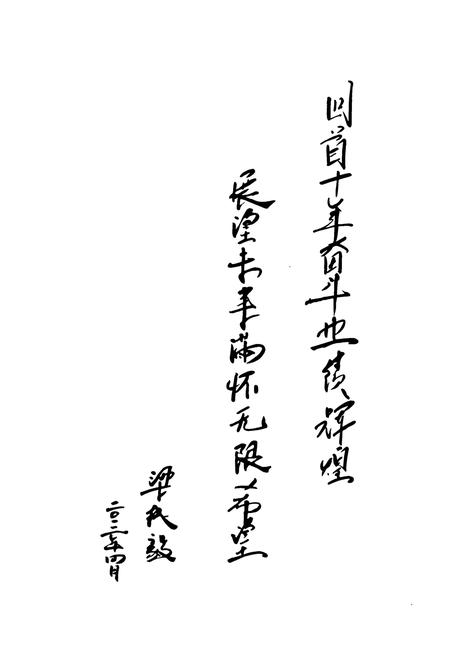 回首十年奋斗业绩辉煌
展望未来满怀无限希望
梁民毅
二〇一二年四月